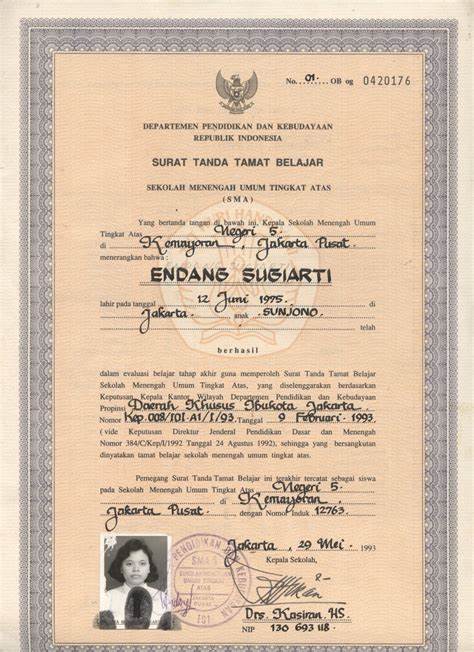 No. 01 OB og 0420176
DEPARTEMEN PENDIDIKAN DAN KEBUDAYAAN
REPUBLIK INDONESIA
SURAT TANDA TAMAT BELAJAR
SEKOLAH MENENGAH UMUM TINGKAT ATAS
(SMA)
Yang bertanda tangan di bawah ini, Kepala Sekolah Menengah Umum
Tingkat Atas Negeri 5
di Kemayoran, Jakarta Pusat
menerangkan bahwa :
ENDANG SUGIARTI
lahir pada tanggal 12 Juni 1975 di
Jakarta anak SUNJONO
telah
berhasil
dalam evaluasi belajar tahap akhir guna memperoleh Surat Tanda Tamat Belajar
Sekolah Menengah Umum Tingkat Atas, yang diselenggarakan berdasarkan
Keputusan Kepala Kantor Wilayah Departemen Pendidikan dan Kebudayaan
Propinsi Daerah Khusus Ibukota Jakarta
Nomor Kep. 008/101.A1/I/93. Tanggal 9 Februari 1993.
( vide Keputusan Direktur Jenderal Pendidikan Dasar dan Menengah
Nomor 384/C/Kep/I/1992 Tanggal 24 Agustus 1992), sehingga yang bersangkutan
dinyatakan tamat belajar sekolah menengah umum tingkat atas.
Pemegang Surat Tanda Tamat Belajar ini terakhir tercatat sebagai siswa
pada Sekolah Menengah Umum Tingkat Atas Negeri 5
di Kemayoran,
Jakarta Pusat, dengan Nomor Induk 12763.
Jakarta, 29 Mei 1993
Kepala Sekolah,
PENDIDIKAN DAN
SMA 5
ATAS
JAKARTA
Drs. Kasiran. HS.
NIP 130 693 118